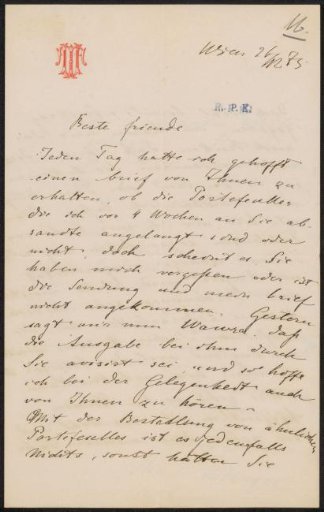 16.
Wien 26/12 75
R.P.K.
Beste friende
Jeden Tag hatte ich gehofft
einen brief von Ihnen zu
erhalten, ob die Portefeuller
die ich vor 4 Wochen an Sie ab-
sandte angelangt sind oder
nicht, doch scheint es Sie
haben mich vergessen oder ist
die Sendung und mein brief
nicht angekommen. Gestern
sagt mir nun Wawra daß
die Ausgabe bei ihm durch
Sie avisirt sei, und so hoffe
ich bei der Gelegenheit auch
von Ihnen zu hören –
Mit der Bestallung von ähnlichen
Portefeulles ist es jedenfalls
Nichts, sonst hätten Sie